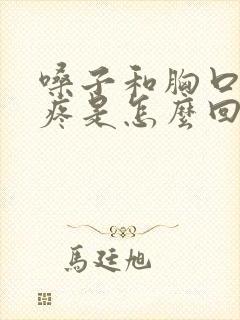 嗓子和胸口
疼是怎麼回
馬廷旭